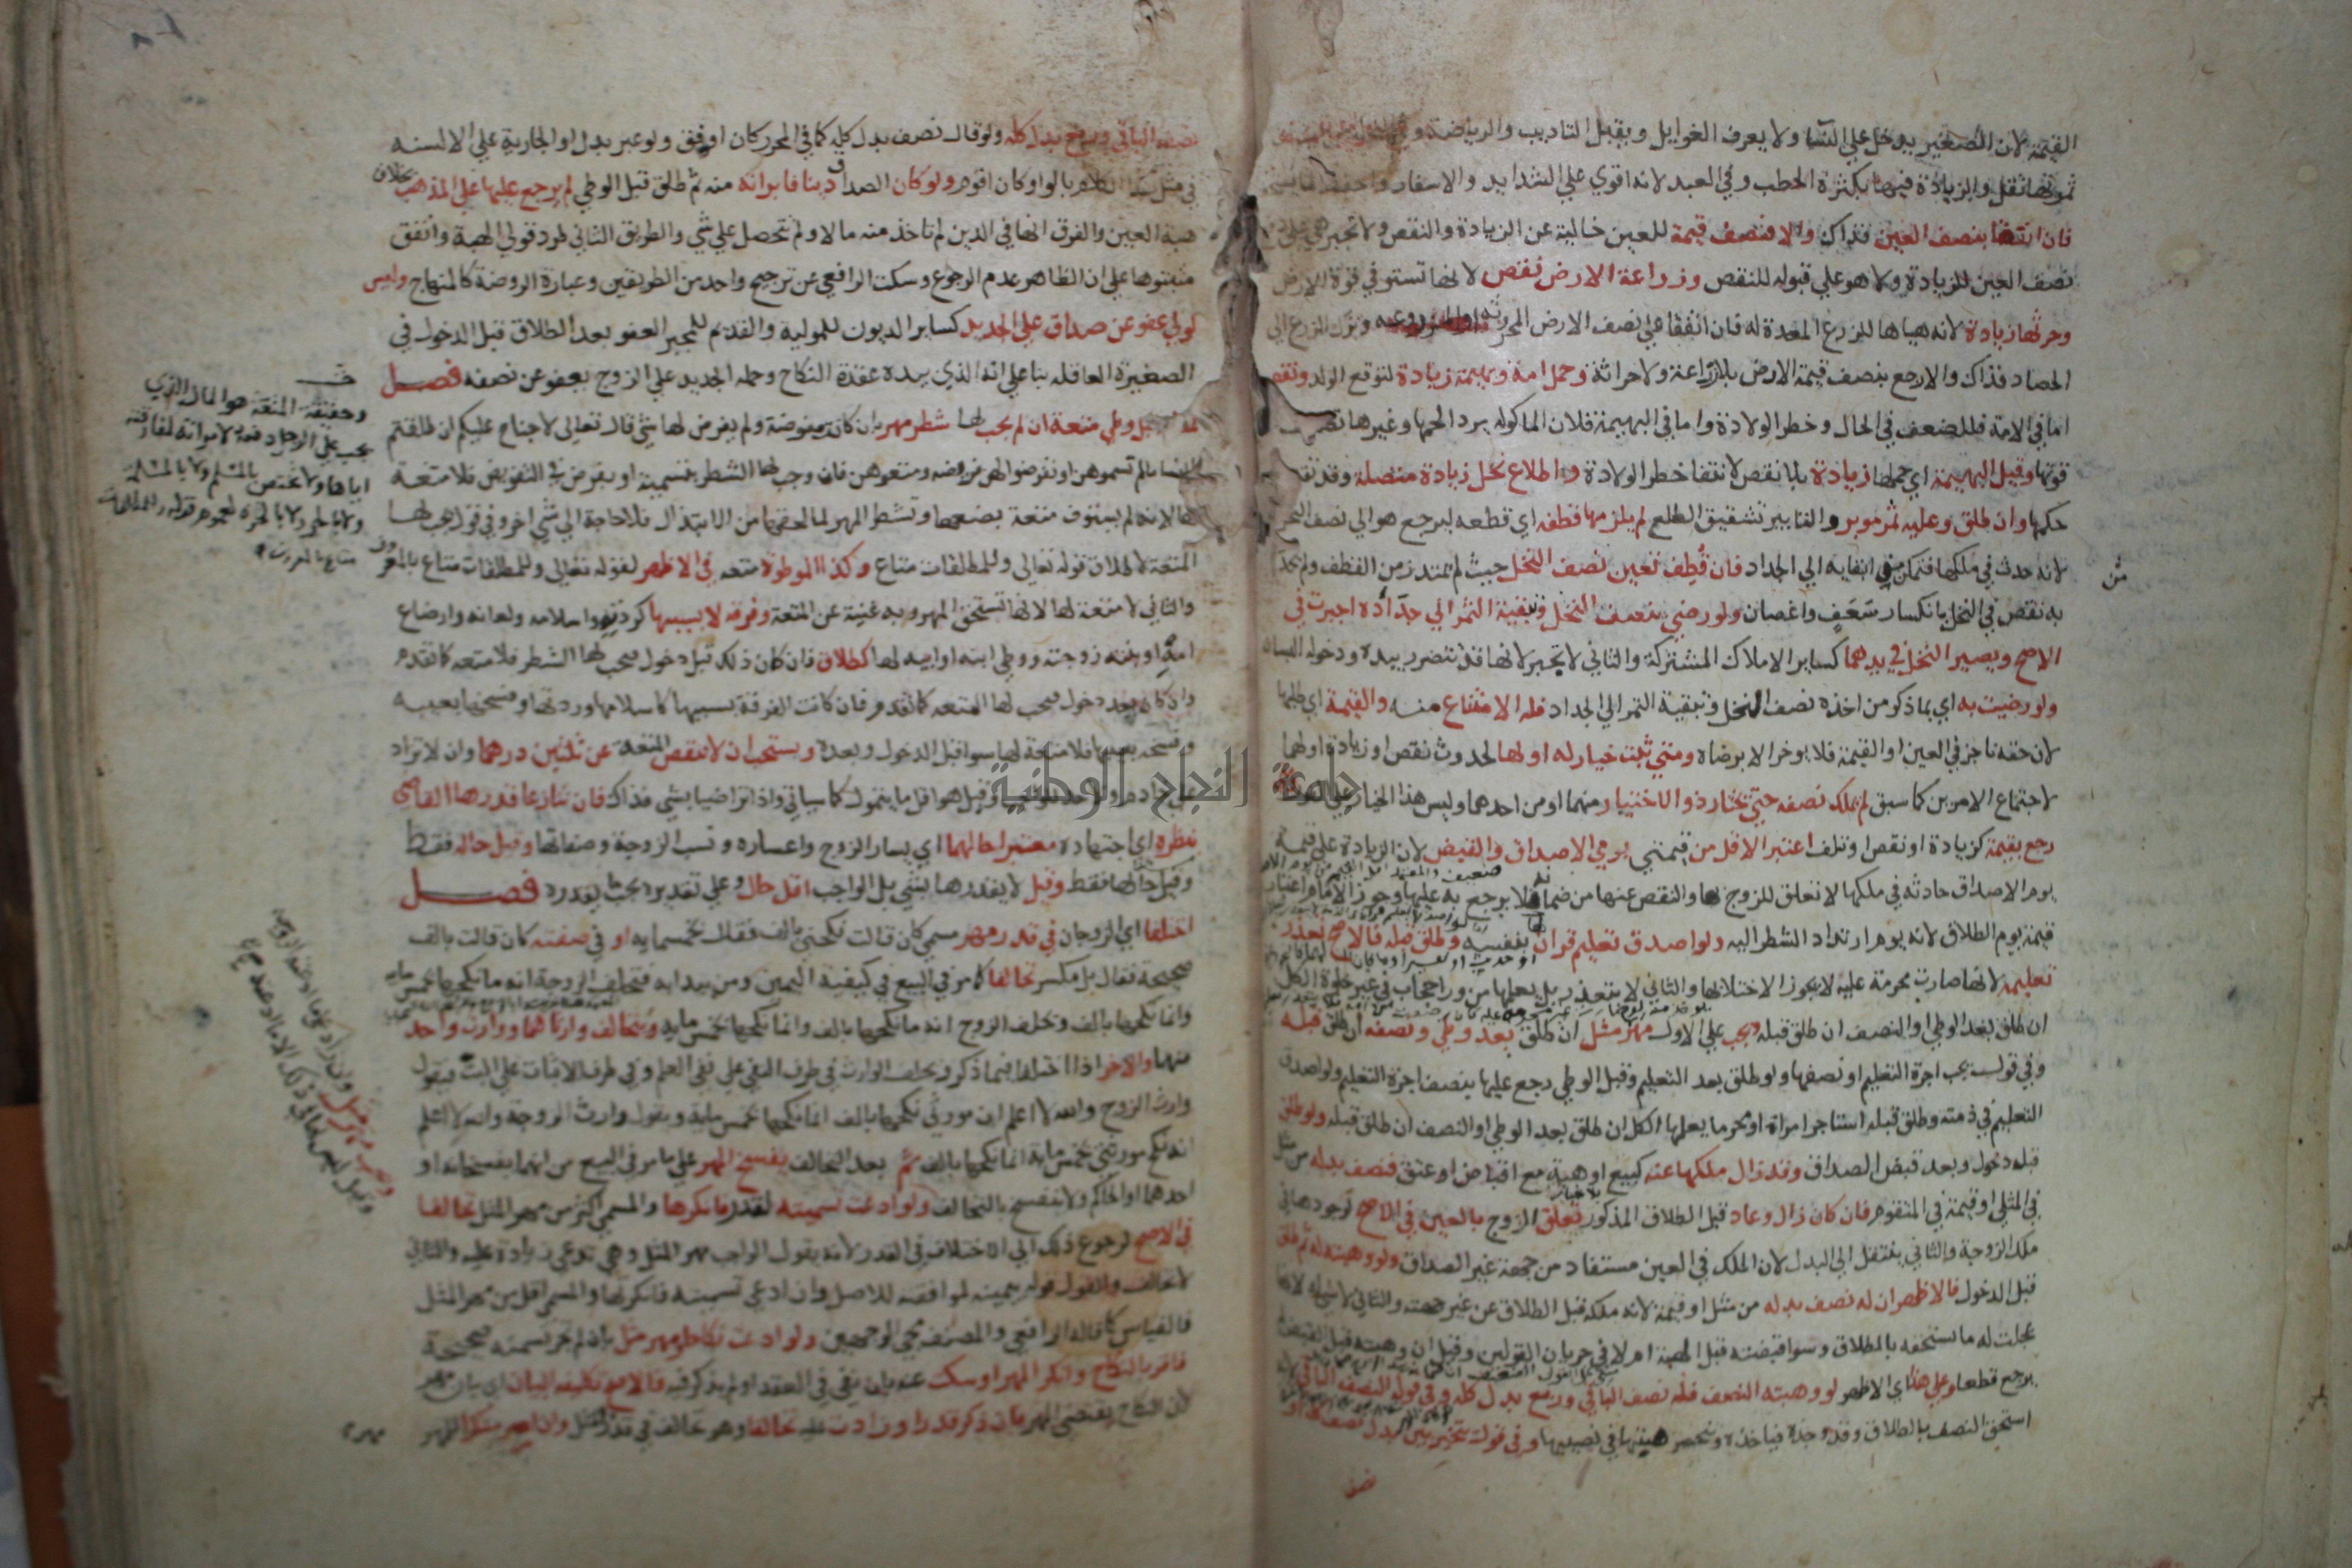 القيمة لان الصغير يدخل علي النسا ولا يعرف الغوايل ويقبل التاديب والرياضة
ثمرتها تقل والزيادة فيها بكثرة الحطب وفي العبد لانه اقوي علي الشدايد والاسفار واحفظ لما
فان اتفقا بنصف العين فذاك والا فنصف قيمة للعين خالية عن الزيادة والنقص ولا تجبر هي علي
نصف العين للزيادة ولا هو علي قبوله للنقص وزراعة الارض نقص لانها تستوفي قوة الارض
وحرثها زيادة لانه هياها للزرع المعدة له فان اتفقا علي نصف الارض المحروثة او المزروعة وترك الزرع الي
الحصاد فذاك والا رجع بنصف قيمة الارض بلا زراعة ولا حراثة وحمل امة وبهيمة زيادة لتوقع الولد ونقص
اما في الامة فللضعف في الحال وخطر الولادة واما في البهيمة فلان الماكوله يرد الحمها وغيرها
قوتها وقيل البهيمة اي حملها زيادة بلا نقص لانتفا خطر الولادة واطلاع نخل زيادة متصلة وقد تقدم
حكمها وان طلق وعليه ثمر موبر والتابير تشقيق الطلع لم يلزمها قطفه اي قطعه ليرجع هو الي نصف النخل
لانه حدث في ملكها فتمكن من ابقايه الي الجداد فان قطف تعين نصف النخل حيث لم يمتد زمن القطف ولم يحدث
به نقص في النخل بانكسار سعف واغصان ولو رضي بنصف النخل وتبقية الثمر الي جداده اجبرت في
الاصح ويصير النخل في يدهما كساير الاملاك المشتركة والثاني لا تجبر لانها قد تتضرر بيده ودخوله البستان
ولو رضيت به اي بما ذكر من اخذه نصف النخل وتبقية الثمر الي الجداد فله الامتناع منه والقيمة اي طلبها
لان حقه ناجز في العين او القيمة فلا يوخر الا برضاه ومتي ثبت خيار له او لها لحدوث نقص او زيادة او لهما
لاجتماع الامرين كما سبق لم يملك نصفه حتي يختار ذو الاختيار منهما او من احدهما وليس هذا الخيار علي الفور
رجع بقيمة كزيادة او نقص او تلف اعتبر الاقل من قيمتي يومي الاصداق والقبض لان الزيادة علي قيمة
يوم الاصداق حادثه في ملكها لا تعلق للزوج بها والنقص عنها من ضمانه فلا يرجع به عليها وجوز الامام اعتبار
قيمة يوم الطلاق لانه يوم ارتداد الشطر اليه ولو اصدق تعليم قران بنفسه وطلق قبله فالاصح تعذر
تعليمه لانها صارت محرمة عليه لا يجوز الاختلا بها والثاني لا يتعذر بل يعلمها من ورا حجاب في غير خلوة الكل
ان طلق بعد الوطي او النصف ان طلق قبله ويجب علي الاول مهر مثل ان طلق بعد وطي ونصفه ان طلق قبله
وفي قول يجب اجرة التعليم او نصفها ولو طلق بعد التعليم وقبل الوطي رجع عليها بنصف اجرة التعليم ولو اصدق
التعليم في ذمته وطلق قبله استاجر امراة او محرما يعلمها الكل ان طلق بعد الوطي او النصف ان طلق قبله ولو طلق
قبله دخول وبعد قبض الصداق وقد زال ملكها عنه كبيع او هبة مع اقباض او عتق فنصف بدله من مثل
في المثلي او قيمة في المتقوم فان كان زال وعاد قبل الطلاق المذكور تعلق الزوج بالعين في الاصح لوجودها في
ملك الزوجة والثاني ينتقل الي البدل لان الملك في العين مستفاد من جهة غير الصداق ولو وهبته له ثم طلق
قبل الدخول فالاظهر ان له نصف بدله من مثل او قيمة لانه ملكه قبل الطلاق عن غير جهته والثاني لا شي له لانها
عجلت له ما يستحقه بالطلاق وسوا قبضته قبل الهبة ام لا في جريان القولين وقيل ان وهبته قبل القبض
يرجع قطعا وعلي هذا اي الاظهر لو وهبته النصف فله نصف الباقي وربع بدل كله وفي قول النصف الباقي
استحق النصف بالطلاق وقد وجده فياخذه وتنحصر هبتها في نصيبها وفي قول يتخير بين بدل نصف كله او
نصف
من
نصف الباقي وربع بدل كله ولو قال نصف بدل كله كما في المحرر كان اوفق ولو عبر بدل او الجارية علي الالسنه
في مثل هذا الكلام بالواو كان اقوم ولو كان الصداق دينا فابراته منه ثم طلق قبل الوطي لم يرجع عليها علي المذهب بخلاف
هبة العين والفرق انها في الدين لم تاخذ منه مالا ولم تتحصل علي شي والطريق الثاني طرد قولي الهبة واتفق
مثبتوها علي ان الظاهر عدم الرجوع وسكت الرافعي عن ترجيح واحد من الطريقين وعبارة الروضة كالمنهاج وليس
لولي عفو عن صداق علي الجديد كساير الديون للمولية والقديم للمجبر العفو بعد الطلاق قبل الدخول في
الصغيرة العاقله بنا علي انه الذي بيده عقدة النكاح وحمله الجديد علي الزوج يعفو عن نصفه فصل
قبل وطي متعة ان لم يجب لها شطر مهر بان كانت مفوضة ولم يفرض لها شي قال تعالي لا جناح عليكم ان طلقتم
النسا ما لم تمسوهن او تفرضوا لهن فريضه ومتعوهن فان وجب لها الشطر بتسمية او بفرض في التفويض فلا متعة
لها لانه لم يستوف منفعة بضعها وتشطر المهر لما لحقها من الابتذال فلا حاجة الي شي اخر وفي قول يجب لها
المتعة لاطلاق قوله تعالي وللمطلقات متاع وكذا الموطوة متعه في الاظهر لقوله تعالي وللمطلقات متاع بالمعروف
والثاني لا متعة لها لانها تستحق المهر وبه غنية عن المتعة وفرقة لا بسببها كردته واسلامه ولعانه وارضاع
امه او بنته زوجته ووطي ابنه او ابيه لها كطلاق فان كان ذلك قبل دخول يجب لها الشطر فلا متعه كما تقدم
وان كان بعد دخول يجب لها المتعه كما تقدم فان كانت الفرقة بسببها كاسلامها وردتها وفسخها بعيبه
وفسخه بعيبها فلا متعة لها سوا قبل الدخول وبعده ويستحب ان لا تنقص المتعة عن ثلثين درهما وان لا تزاد
علي خادم وقيل هو اقل ما يتمول كما سياتي واذا تراضيا بشي فذاك فان تنازعا قدرها القاضي
بنظره اي اجتهاده معتبرا حالهما اي يسار الزوج واعساره ونسب الزوجة وصفاتها وقيل حاله فقط
وقيل حالها فقط وقيل لا يقدرها بشي بل الواجب اقل مال وعلي تقديره يجب ما يقدره فصل
اختلفا اي الزوجان في قدر مهر مسمي كان قالت نكحتني بالف فقال بخمسمايه او في صفته كان قالت بالف
صحيحة فقال بل مكسر تحالفا كما مر في البيع في كيفية اليمين ومن يبدا به فتحلف الزوجة انه ما نكحها بخمس مايه
وانما نكحها بالف ويحلف الزوج انه ما نكحها بالف وانما نكحها بخمس مايه ويتحالف وارثاهما ووارث واحد
منهما والاخر اذا اختلفا فيما ذكر ويحلف الوارث في طرف النفي علي نفي العلم وفي طرف الاثبات علي البت فيقول
وارث الزوج والله لا اعلم ان مورثي نكحها بالف انما نكحها بخمس ماية ويقول وارث الزوجة والله لا اعلم
انه نكح مورثتي بخمس ماية انما نكحها بالف ثم بعد التحالف يفسخ المهر علي ما مر في البيع من انهما يفسخانه او
احدهما او الحاكم ولا ينفسخ بالتحالف ولو ادعت تسميته لقدر فانكرها والمسمي اكثر من مهر المثل تحالفا
في الاصح لرجوع ذلك الي الاختلاف في القدر لانه يقول الواجب مهر المثل وهي تدعي زيادة عليه والثاني
لا تحالف والقول قوله بيمينه لموافقته للاصل وان ادعي تسمية فانكرتها والمسمي اقل من مهر المثل
فالقياس كما قاله الرافعي والمصنف مجي الوجهين ولو ادعت نكاحا ومهر مثل بان لم تجر تسمية صحيحة
فاقر بالنكاح وانكر المهر او سكت عنه بان نفي في العقد او لم يذكر فيه فالاصح تكليفه البيان اي بيان مهر
لان النكاح يقتضي المهر فان ذكر قدرا وزادت عليه تحالفا وهو تحالف في قدر المثل وان اصر منكرا للمهر
وحقيقة المتعة هو المال الذي
يجب علي الرجل دفعه لامراته لمفارقته
اياها ولا تختص بالمسلم ولا بالمسلمة
ولا بالحر ولا بالحرة لعموم قوله وللمطلقات
متاع بالمعروف